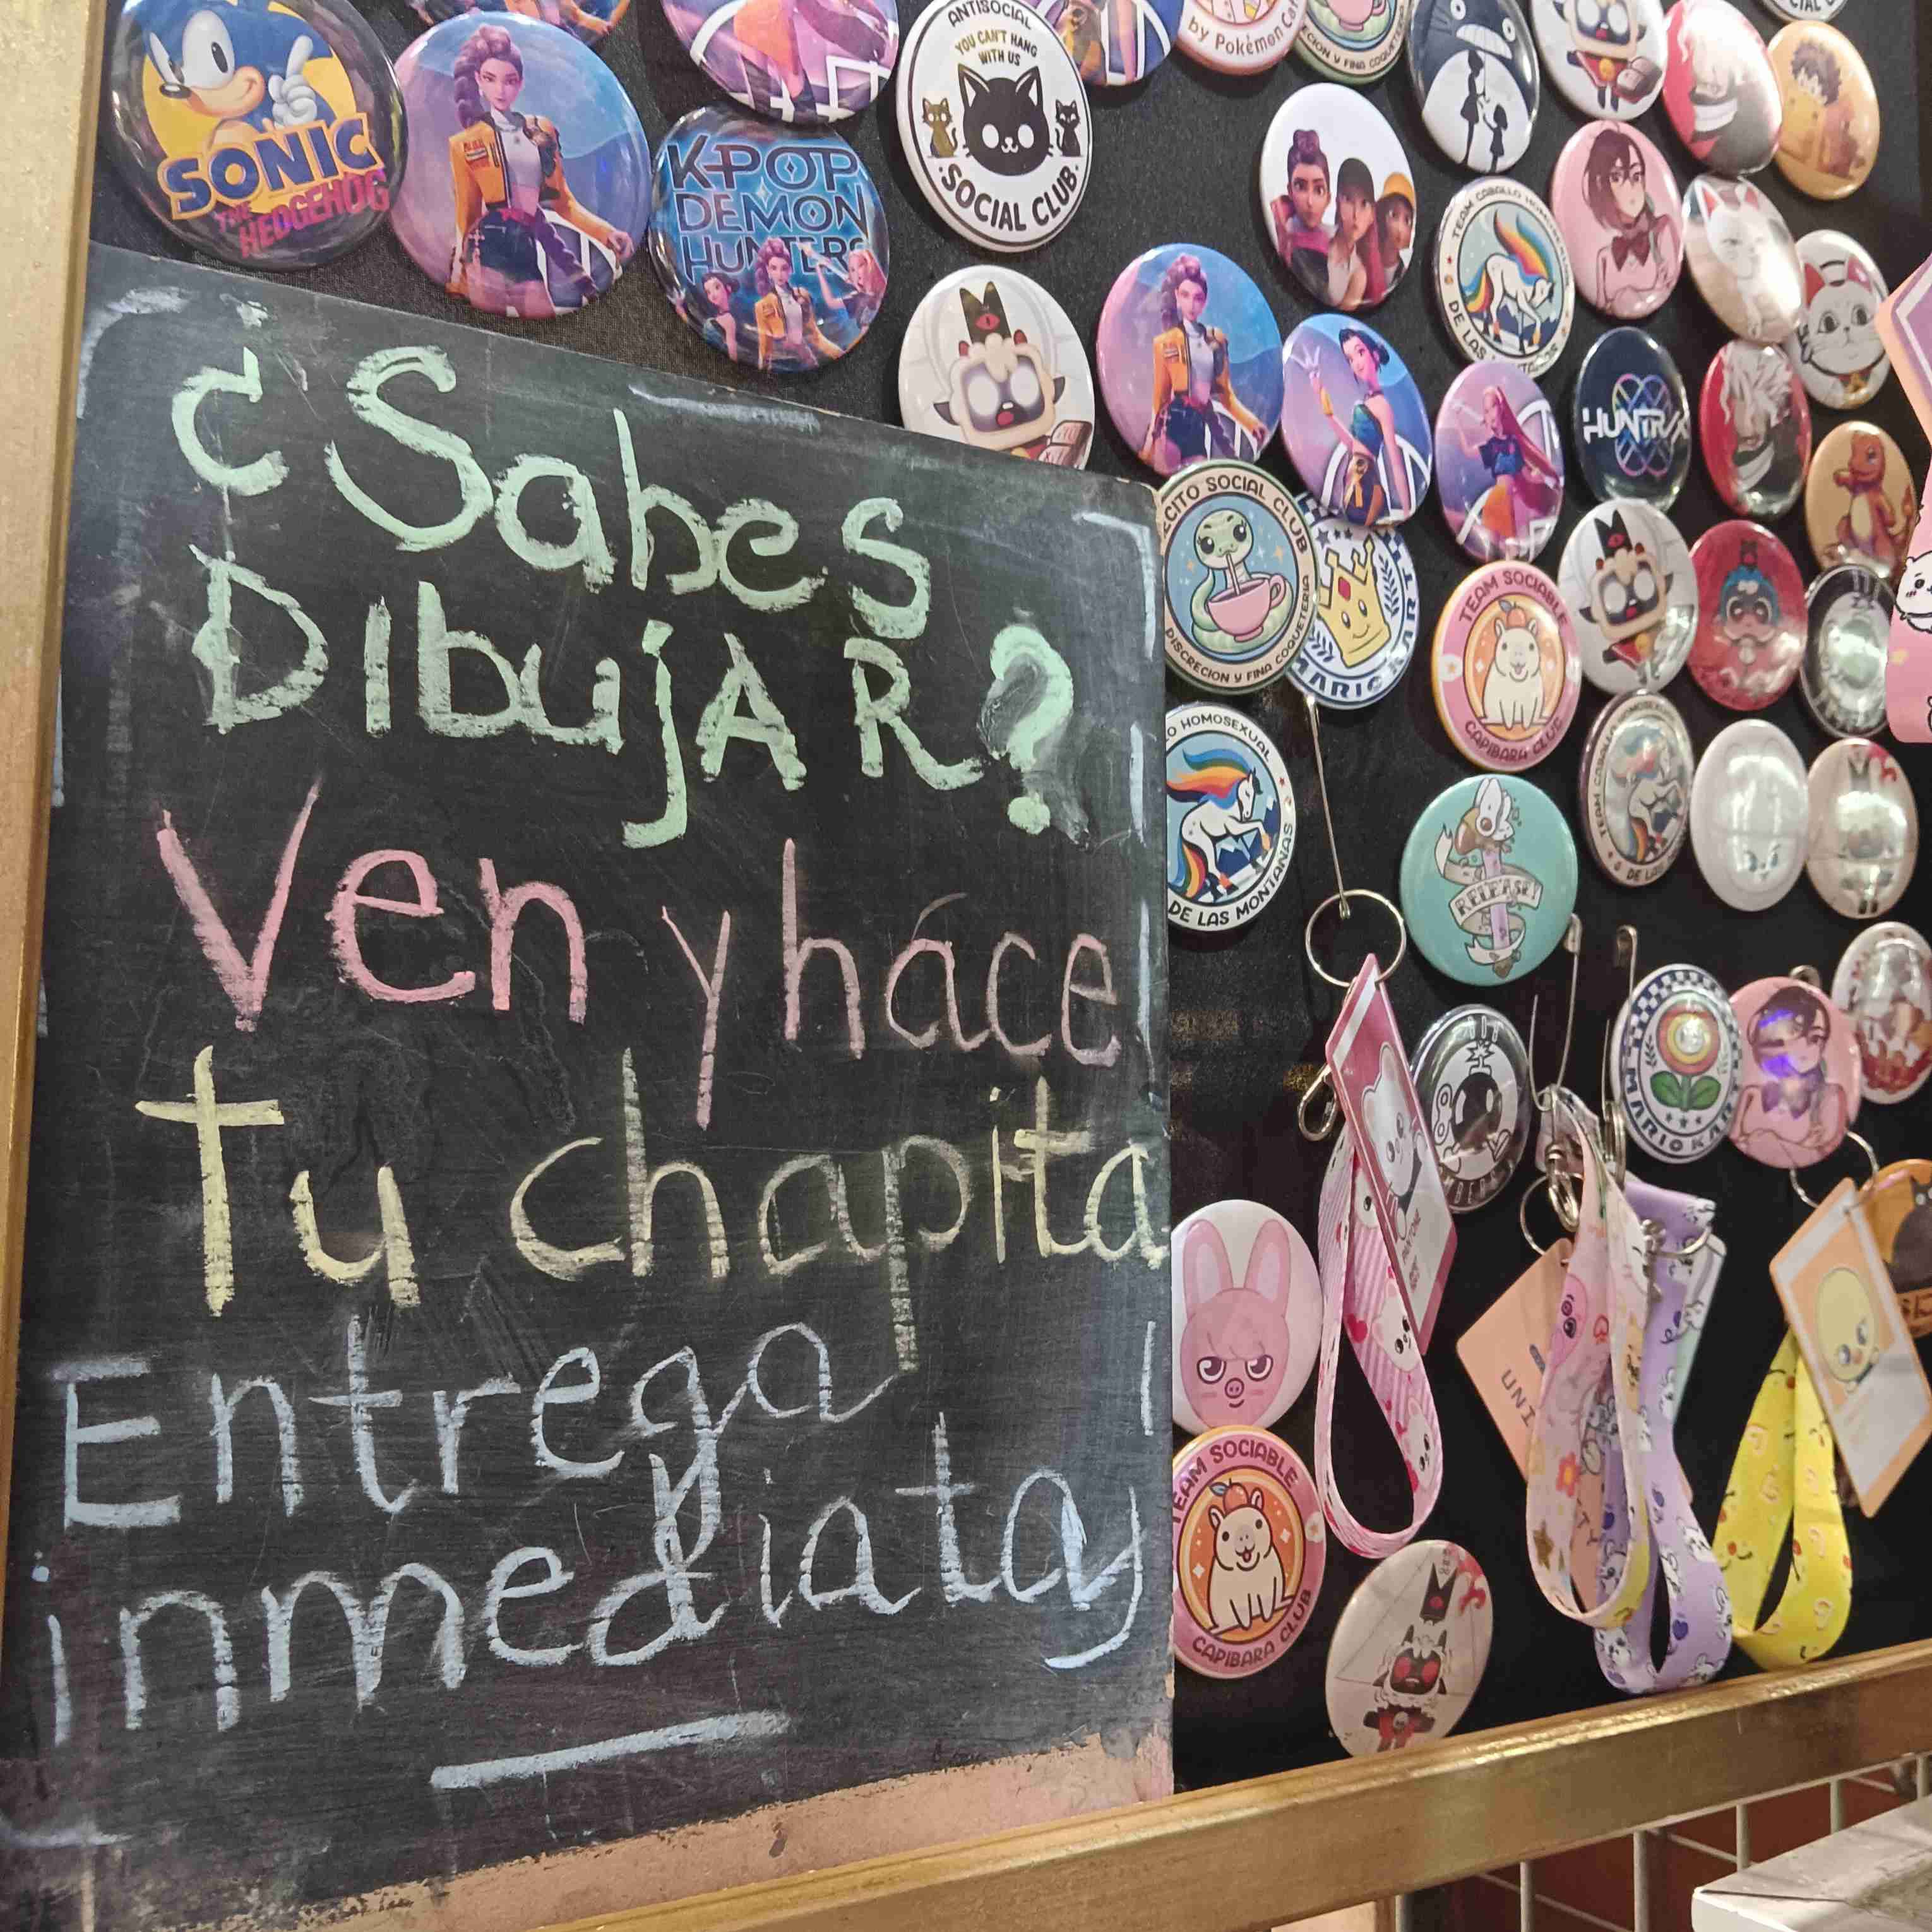 ¿Sabes
DIbujAR?
Ven y háce
Tu chapita
Entrega
inmediata
SONIC
THE
HEDGEHOG
K-POP
DEMON
HUNTERS
ANTISOCIAL
YOU CAN'T HANG
WITH US
SOCIAL CLUB
by Pokémon
TEAM CABALLO
DE LAS
HUNTR/X
CITO SOCIAL CLUB
DISCRECION Y FINA COQUETERIA
MARIO KART
TEAM SOCIABLE
CAPIBARA CLUB
HOMOSEXUAL
DE LAS MONTAÑAS
TEAM CABALLO
DE LAS
RELEASE!
MARIO KART
TEAM SOCIABLE
CAPIBARA CLUB
UNI